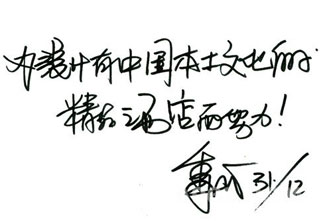 为装计有中国本土文化的
精品酒店而努力!
31/12